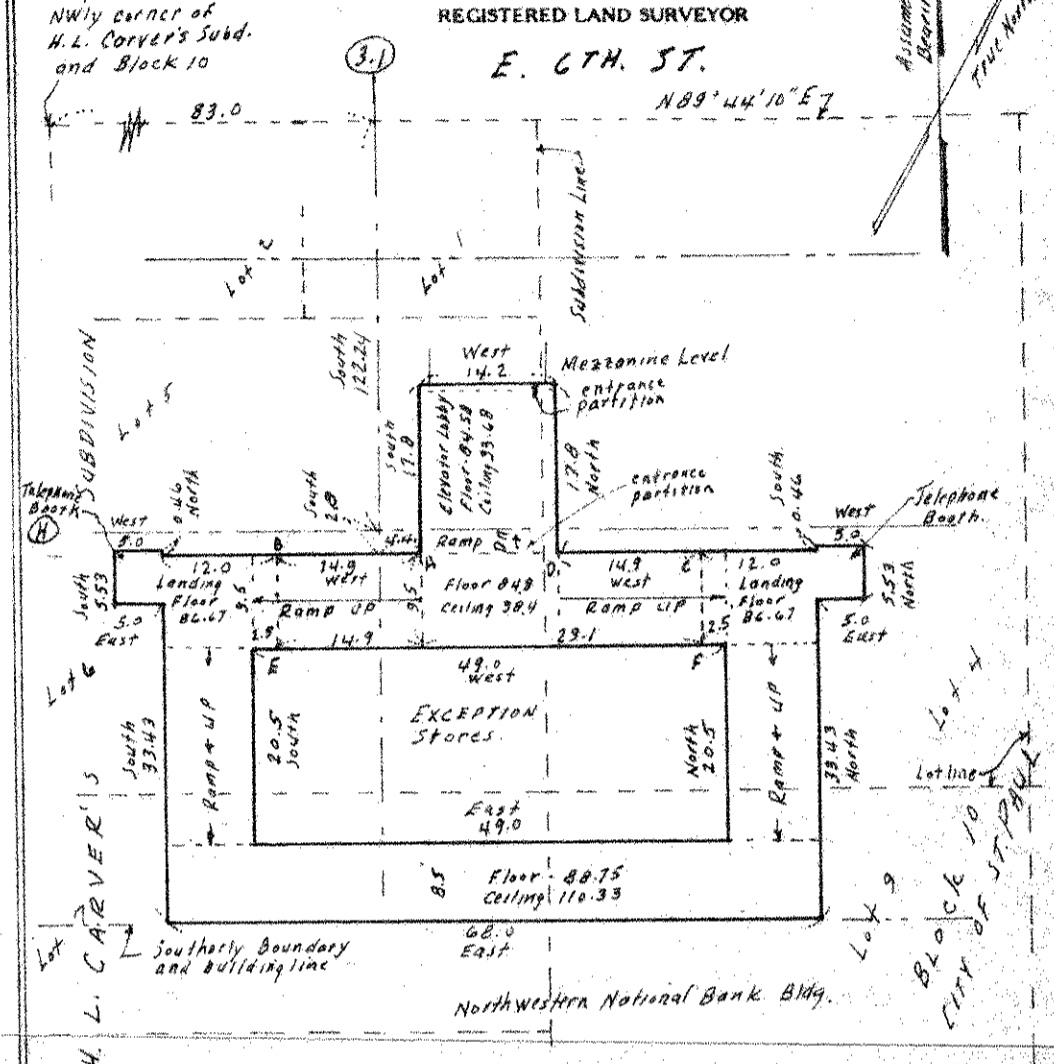 NWly corner of
H.L. Carver's Subd.
and Block 10
REGISTERED LAND SURVEYOR
3.1
E. 6TH. ST.
Assumed
Bearing
True North
83.0
N89°44'10"E
Subdivision Line
Lot 2
Lot 1
SUBDIVISION
Lot 5
South
122.24
West
14.2
Mezzanine Level
entrance
partition
South
17.8
Elevator Lobby
Floor-84.58
Ceiling 93.68
17.8
North
entrance
partition
Telephone
Booth
H
West
5.0
0.46
North
South
2.8
4.4
Ramp Dn
South
0.46
West
5.0
Telephone
Booth.
South
5.53
5.0
East
12.0
Landing
Floor
86.67
9.5
14.9
West
Ramp up
9.5
Floor 84.8
Ceiling 98.4
14.9
West
C
Ramp up
12.0
Landing
Floor
86.67
5.53
North
5.0
East
2.5
14.9
29.1
12.5
E
F
49.0
West
Lot 6
South
33.43
Ramp up
20.5
South
EXCEPTION
Stores.
North
20.5
Ramp up
33.43
North
Lot line
East
49.0
8.5
Floor - 88.75
Ceiling 110.33
68.0
East
Lot
Southerly Boundary
and building line
Lot 9
BLOCK 10
CITY OF ST. PAUL
Northwestern National Bank Bldg.
H. L. CARVER'S